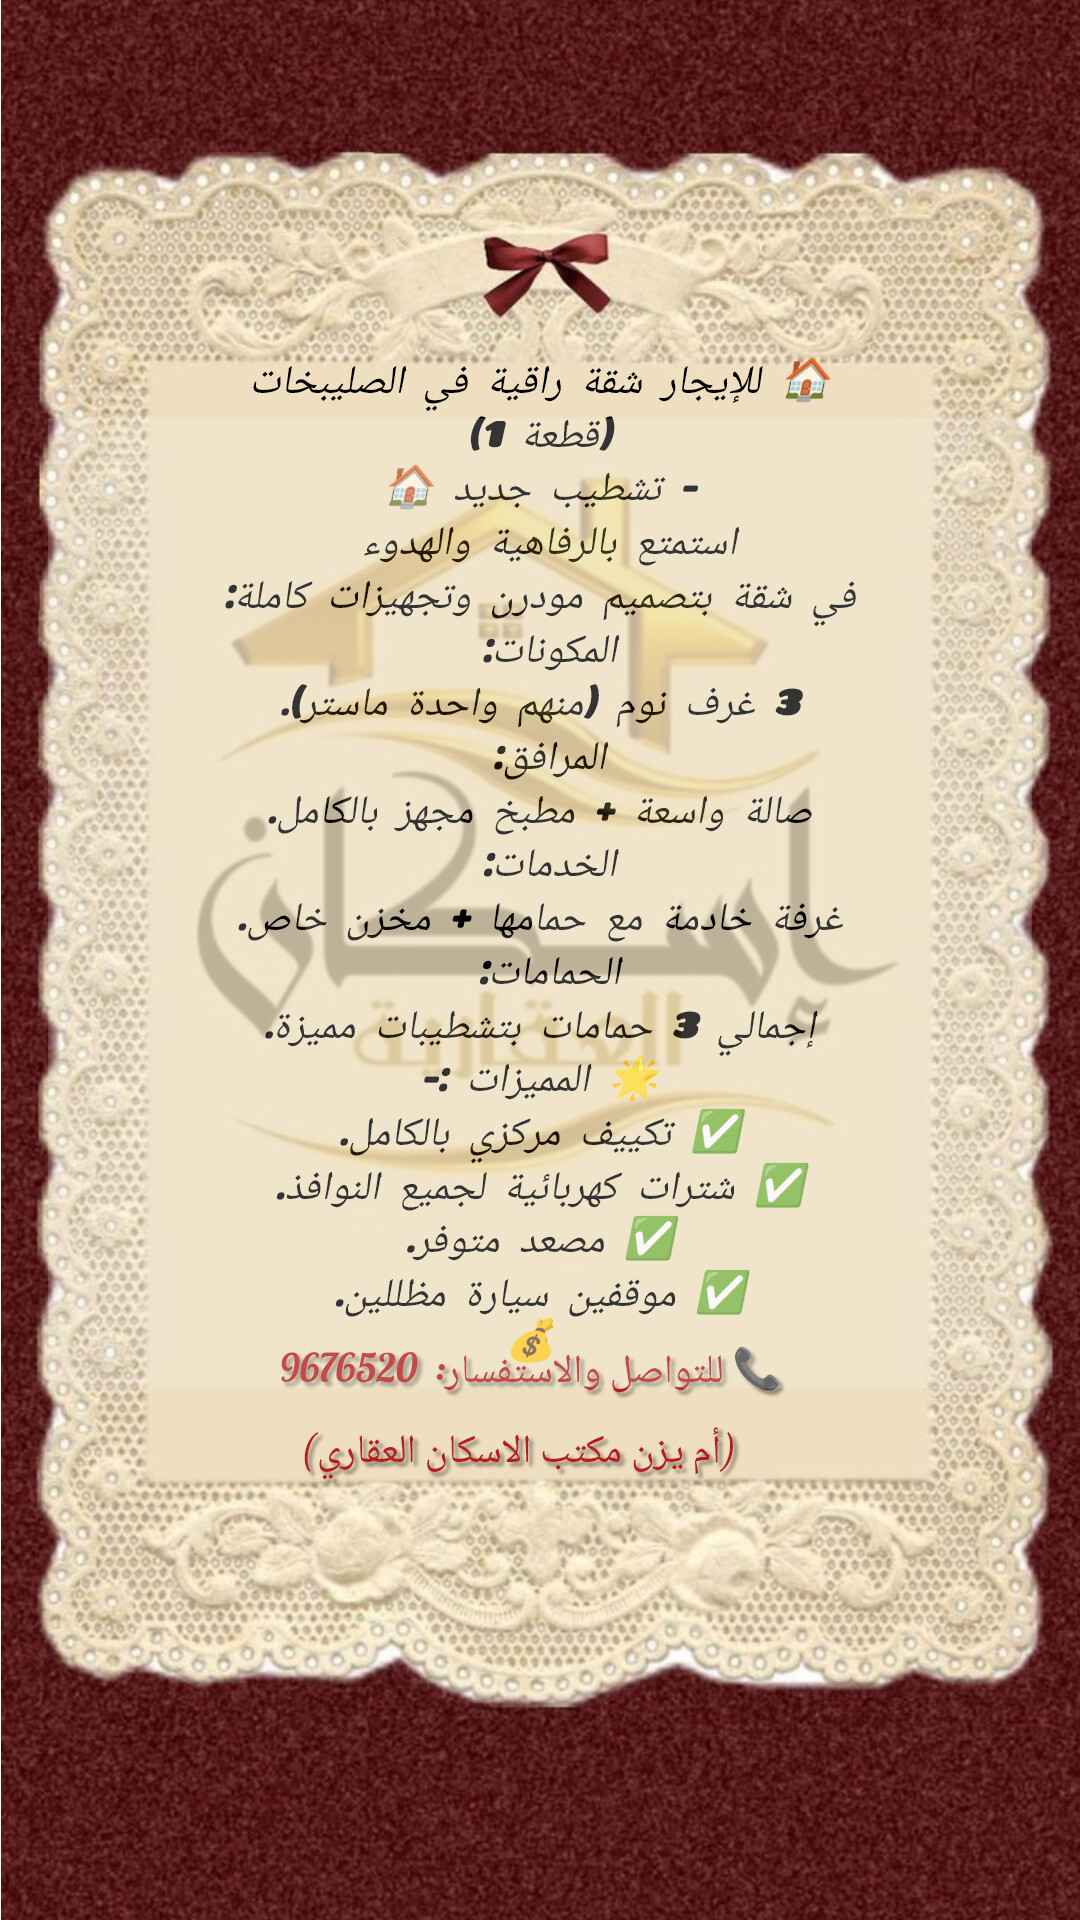 🏠 للإيجار شقة راقية في الصليبخات
(قطعة 1)
- تشطيب جديد 🏠
استمتع بالرفاهية والهدوء
في شقة بتصميم مودرن وتجهيزات كاملة:
المكونات:
3 غرف نوم (منهم واحدة ماستر).
المرافق:
صالة واسعة + مطبخ مجهز بالكامل.
الخدمات:
غرفة خادمة مع حمامها + مخزن خاص.
الحمامات:
إجمالي 3 حمامات بتشطيبات مميزة.
🌟 المميزات :-
✅ تكييف مركزي بالكامل.
✅ شترات كهربائية لجميع النوافذ.
✅ مصعد متوفر.
✅ موقفين سيارة مظللين.
💰
📞 للتواصل والاستفسار: 9676520
(أم يزن مكتب الاسكان العقاري)
إسكان
العقارية